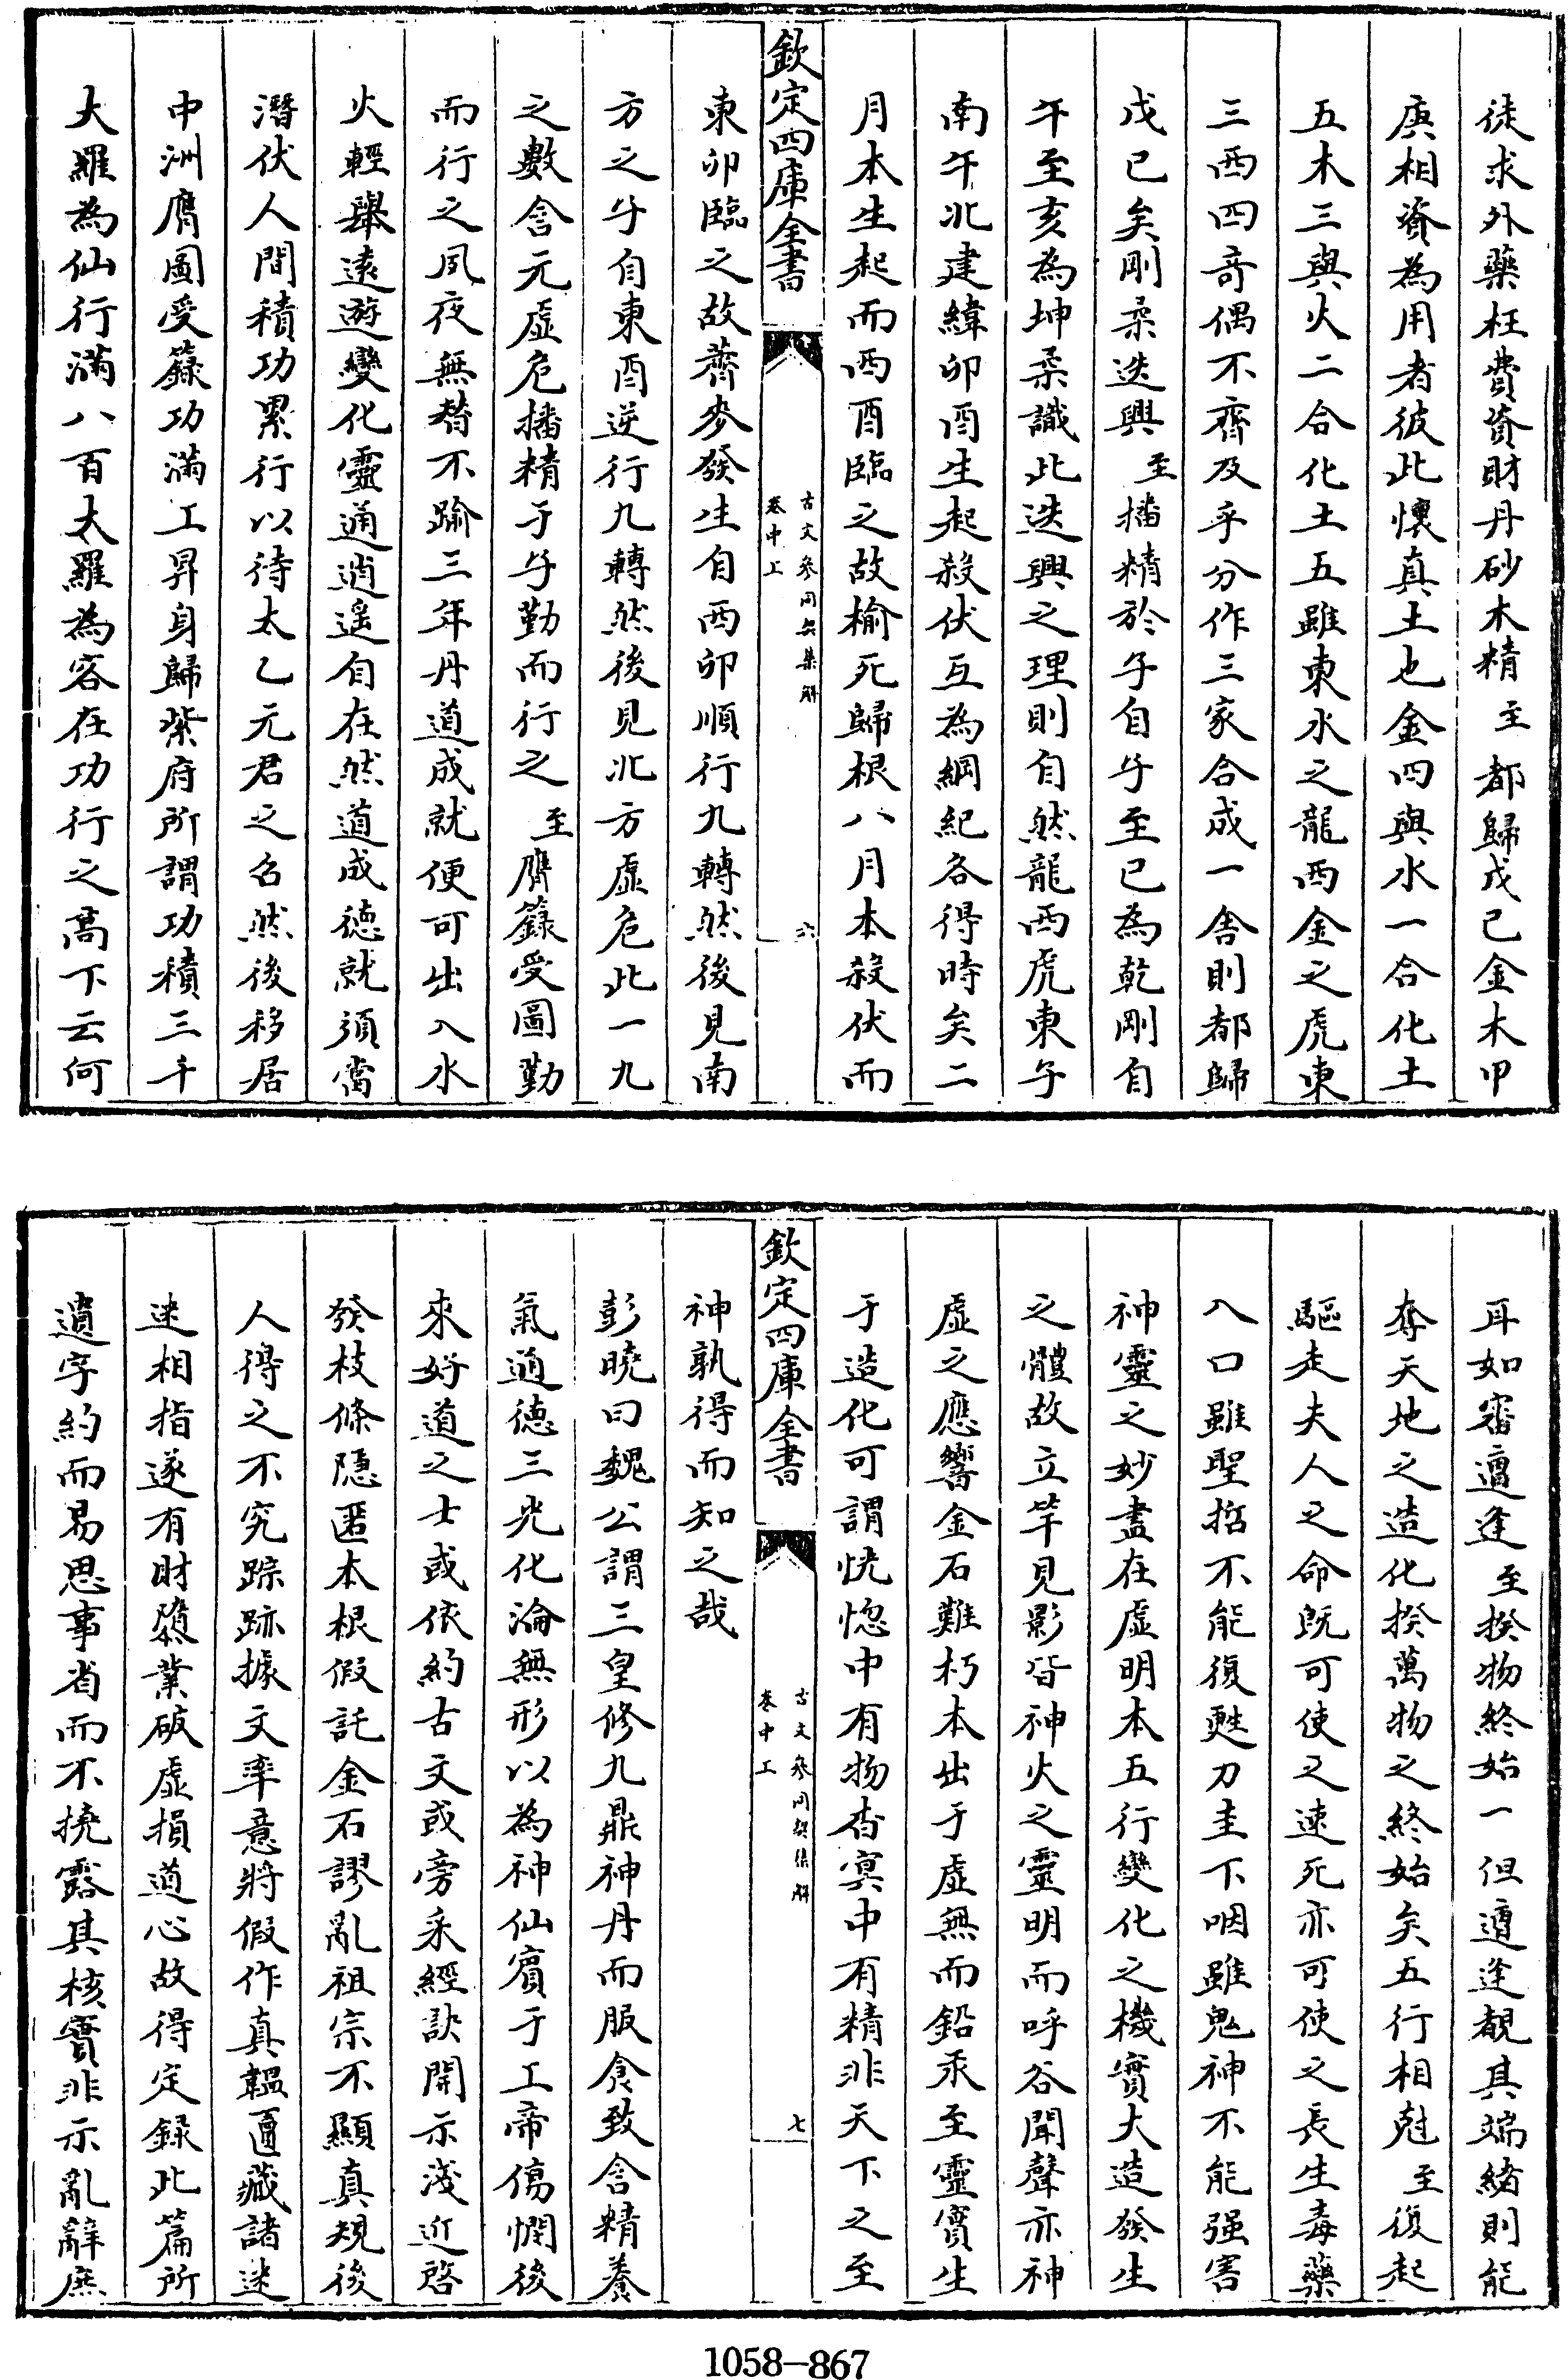 徒求外藥枉費資財丹砂木精至都歸戊己金木甲
庚相資為用者彼此懷真土也金四與水一合化土
五木三與火二合化土五雖東水之龍西金之虎東
三西四竒偶不齊及乎分作三家合成一舍則都歸
戊已矣剛柔迭興至播精於子自子至已為乾剛自
午至亥為坤柔識此迭興之理則自然龍西虎東子
南午北建緯卯酉生起殺伏互為綱紀各得時矣二
月本生起而西酉臨之故榆死歸根八月本殺伏而
欽定四庫全書
古文參同契集解
卷中上
六
東卯臨之故薺麥發生自西卯順行九轉然後見南
方之午自東酉逆行九轉然後見北方虛危此一九
之數含元虛危播精于子勤而行之至膺籙受圖勤
而行之夙夜無替不踰三年丹道成就便可出入水
火輕舉遠遊變化靈通逍遙自在然道成德就須當
潛伏人間積功累行以待太乙元君之召然後移居
中洲膺圖受籙功滿上昇身歸紫府所謂功積三千
大羅為仙行滿八百大羅為客在功行之髙下云何
耳如審遭逢至揆物終始一但遭逢覩其端緒則能
奪天地之造化揆萬物之終始矣五行相尅至復起
驅走夫人之命既可使之速死亦可使之長生毒藥
入口雖聖哲不能復甦刀圭下咽雖鬼神不能强害
神靈之妙盡在虛明本五行變化之機實大造發生
之體故立竿見影皆神火之靈明而呼谷聞聲亦神
虛之應響金石難朽本出于虛無而鉛汞至靈實生
于造化可謂恍惚中有物杳冥中有精非天下之至
欽定四庫全書
古文參同契集解
卷中上
七
神孰得而知之哉
彭曉曰魏公謂三皇修九鼎神丹而服食致含精養
氣通德三光化淪無形以為神仙賓于上帝傷憫後
來好道之士或依約古文或旁采經訣開示淺近啓
發枝條隱匿本根假託金石謬亂祖宗不顯真規後
人得之不究踪跡據文率意將假作真韞匵藏諸迷
迷相指遂有財隳業破虛損道心故得定録此篇所
遺字約而易思事省而不撓露其核實非示亂辭庶
1058-867